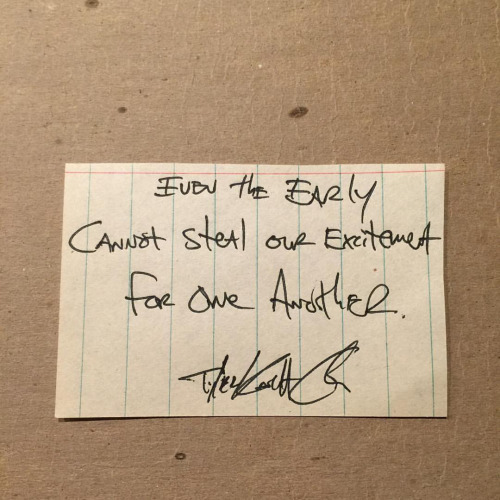 Even the Early
Cannot Steal our Excitement
for One Another.
Tyler Knott G